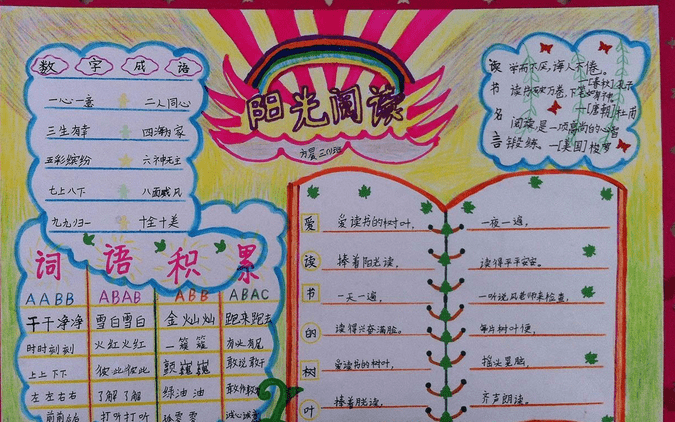 数字成语
一心一意 二人同心
三生有幸 四海为家
五彩缤纷 六神无主
七上八下 八面威风
九九归一 十全十美
阳光阅读
方晨 三(1)班
读书名言
学而不厌,诲人不倦。
—[春秋]孔子
读书破万卷,下笔如有神。
—[唐朝]杜甫
阅读是一项高尚的心智
锻练。—[美国]梭罗
词语积累
AABB ABAB ABB ABAC
干干净净 雪白雪白 金灿灿 跑来跑去
时时刻刻 火红火红 一簇簇 有始有尾
上上下下 彼此彼此 颤巍巍 敢说敢干
左左右右 了解了解 绿油油
打听打听 诚心诚意
爱读书的树叶
爱读书的树叶,
捧着阳光读,
一天一遍,
读得兴奋满脸。
爱读书的树叶,
捧着读,
一夜一遍,
读得平平安安。
一听说风老师来检查,
每片树叶便,
摇头晃脑,
齐声朗读。